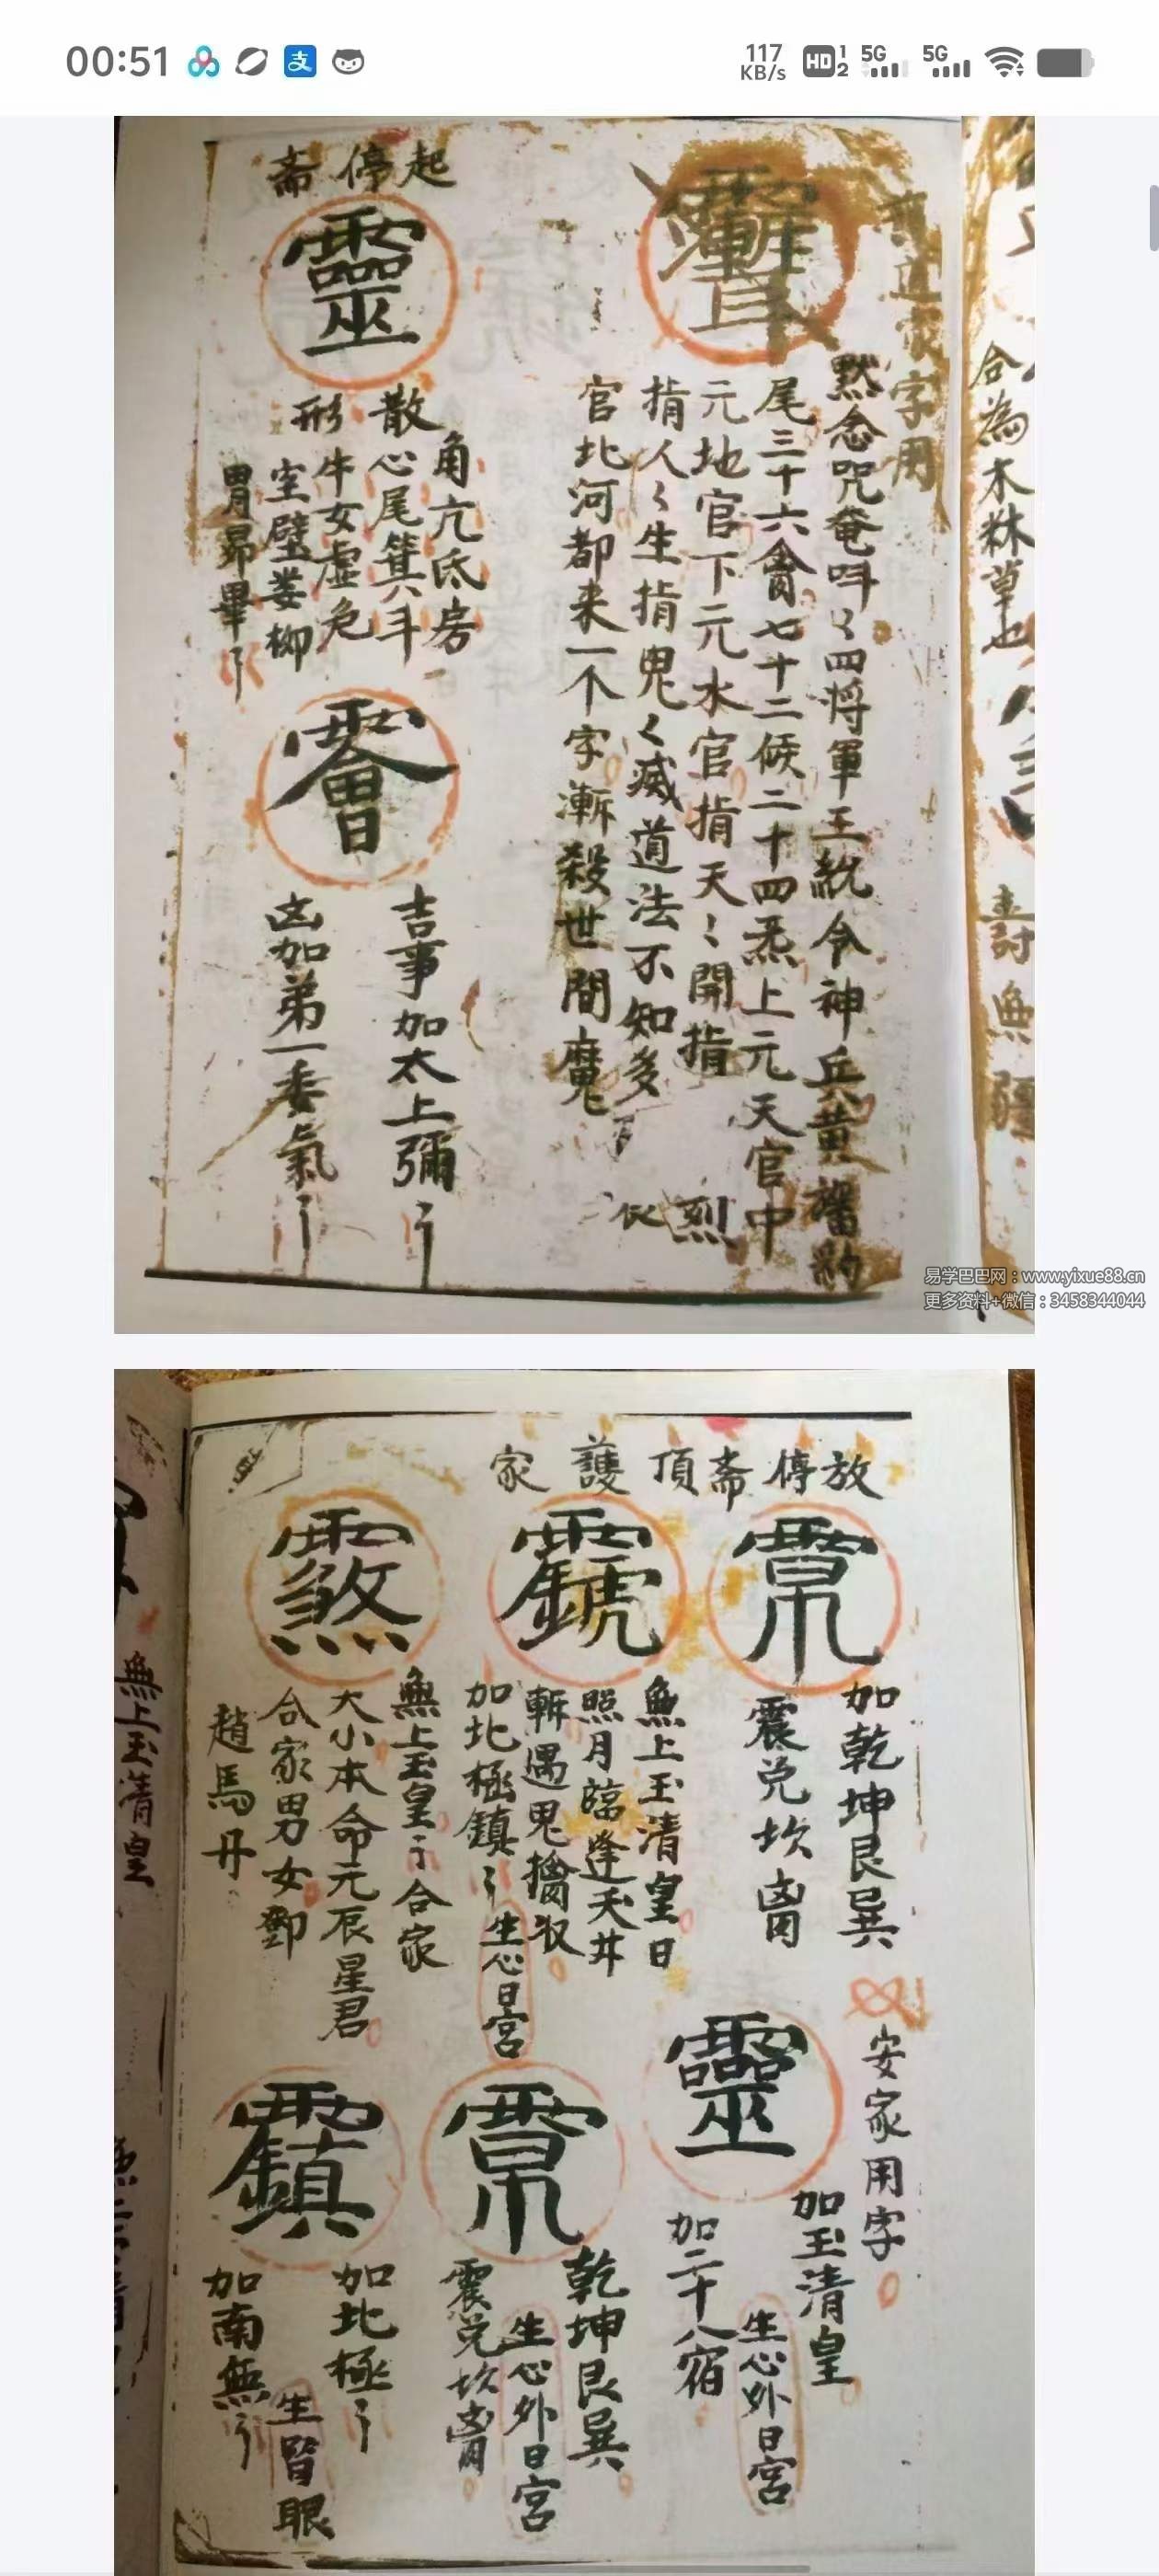 00:51
117 KB/s HD 1 2 5G 5G
合為木秝草也
壽無疆
道家字用
默念咒奄吽〻四将軍王統令神兵黄旛豹
尾三十六禽七十二候二十四炁上元天官中
元地官下元水官指天〻開指
烈
指人〻生指鬼〻滅道法不知多
官北河都来一个字漸殺世間魔
起停斋
靈
角亢氐房
散心尾箕斗
形牛女虚危
室壁娄柳
胃昴畢
吉事加太上彌
凶加弟一委氣
易学巴巴网：www.yixue88.cn
更多资料+微信：3458344044
放停斋頂護家
加乾坤艮巽
震兑坎离
無上玉清皇日
照月臨逢天井
斬遇鬼擒收
加北極鎮
生心日宮
無上玉皇
合家
大小本命元辰星君
合家男女鄧
趙馬丹
安家用字
靈
加玉清皇
生心外日宮
加二十八宿
乾坤艮巽
生心外日宮
震兑坎离
加北極
生皆眼
加南無
無上玉清皇